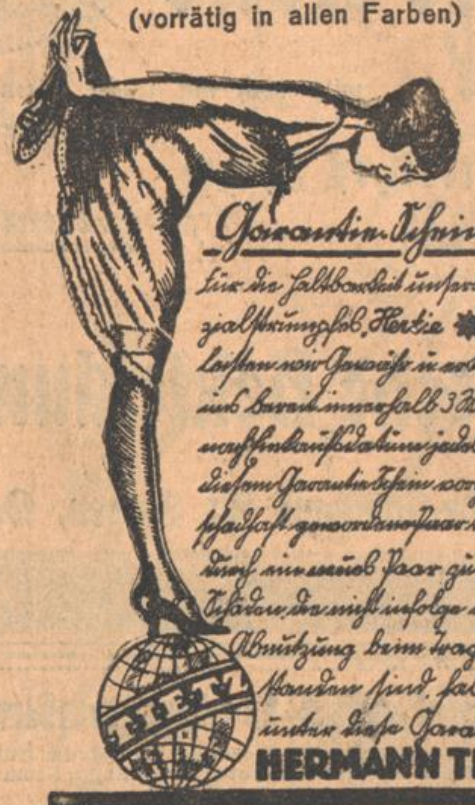 (vorrätig in allen Farben)
Garantie-Schein
Für die Haltbarkeit unsere
zialstrumpfes, Hertie
leisten wir Gewähr u. er
uns bereit innerhalb 3 M
nach Einkaufsdatum jedes
diesem Garantie Schein vor
schadhaft gewordene Paar
durch ein neues Paar zu
Schäden, die nicht infolge
Abnützung beim Trag
standen sind, fal
unter diese Gara
TIETZ
HERMANN TI